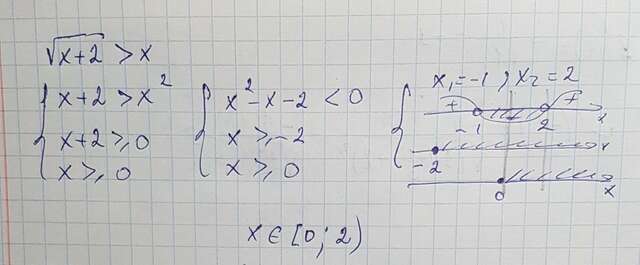 √x+2 > x
x+2 > x²
x+2 ⩾ 0
x ⩾ 0
x²-x-2 < 0
x ⩾ -2
x ⩾ 0
x₁=-1 ; x₂=2
+ - +
-1 2 x
-2 x
0 x
x ∈ [0; 2)